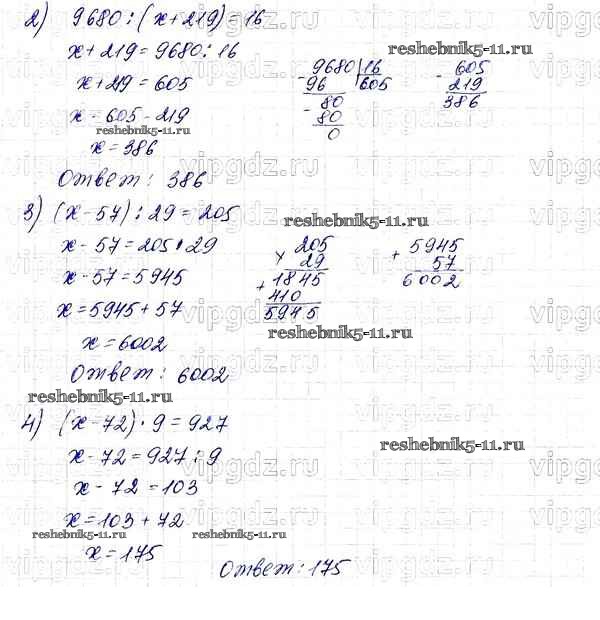 2) 9680 : (x + 219) = 16
x + 219 = 9680 : 16
x + 219 = 605
x = 605 - 219
x = 386
- 9680 | 16
96 605
- 80
80
0
- 605
219
386
Ответ: 386
3) (x - 57) : 29 = 205
x - 57 = 205 · 29
x - 57 = 5945
x = 5945 + 57
x = 6002
× 205
29
+ 1845
410
5945
+ 5945
57
6002
Ответ: 6002
4) (x - 72) · 9 = 927
x - 72 = 927 : 9
x - 72 = 103
x = 103 + 72
x = 175
Ответ: 175
reshebnik5-11.ru
reshebnik5-11.ru
reshebnik5-11.ru
reshebnik5-11.ru
reshebnik5-11.ru
reshebnik5-11.ru
reshebnik5-11.ru
reshebnik5-11.ru
vipgdz.ru